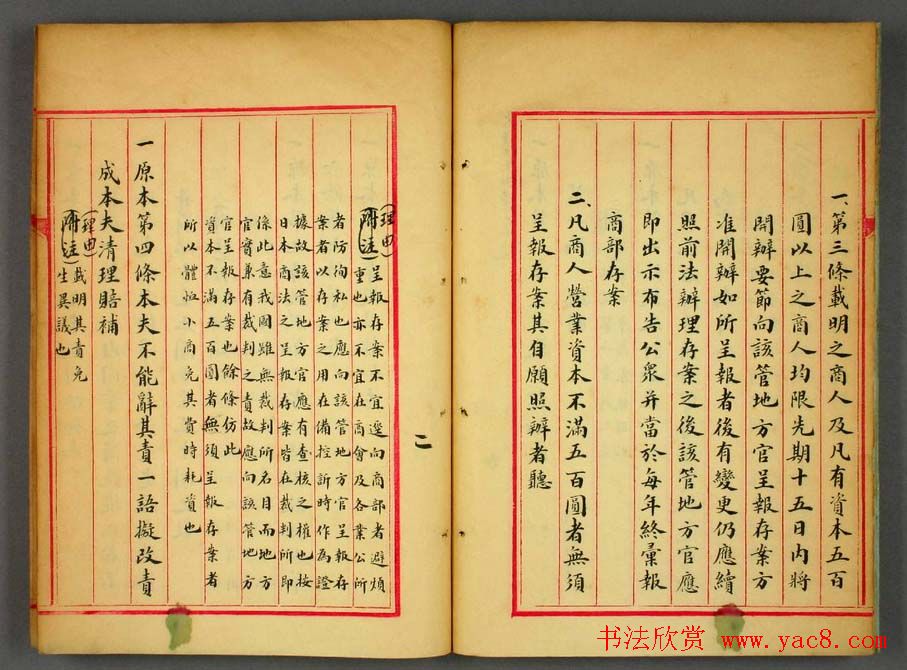 一、第三條載明之商人及凡有資本五百
圓以上之商人均限先期十五日內將
開辦要節向該管地方官呈報存案方
准開辦如所呈報者後有變更仍應續
照前法辦理存案之後該管地方官應
即出示布告公眾并當於每年終彙報
商部存案
二、凡商人營業資本不滿五百圓者無須
呈報存案其自願照辦者聽
(理由)
(附注)呈報存案不宜逕向商部者避煩
重也亦不宜在商會及各業公所
者防徇私也應向該管地方官呈報存
案者以存案之用在備控訴時作為證
據故該管地方官應有查核之權也按
日本商法之呈報存案皆在裁判所即
係此意我國雖無裁判所名目而地方
官實兼有裁判之責故應向該管地方
官呈報存案也餘條仿此
資本不滿五百圓者無須呈報存案者
所以體恤小商免其賞時耗資也
二
一原本第四條本夫不能辭其責一語擬改責
成本夫清理賠補
(理由)
(附注)載明其責免
生異議也
书法欣赏 www.yac8.com